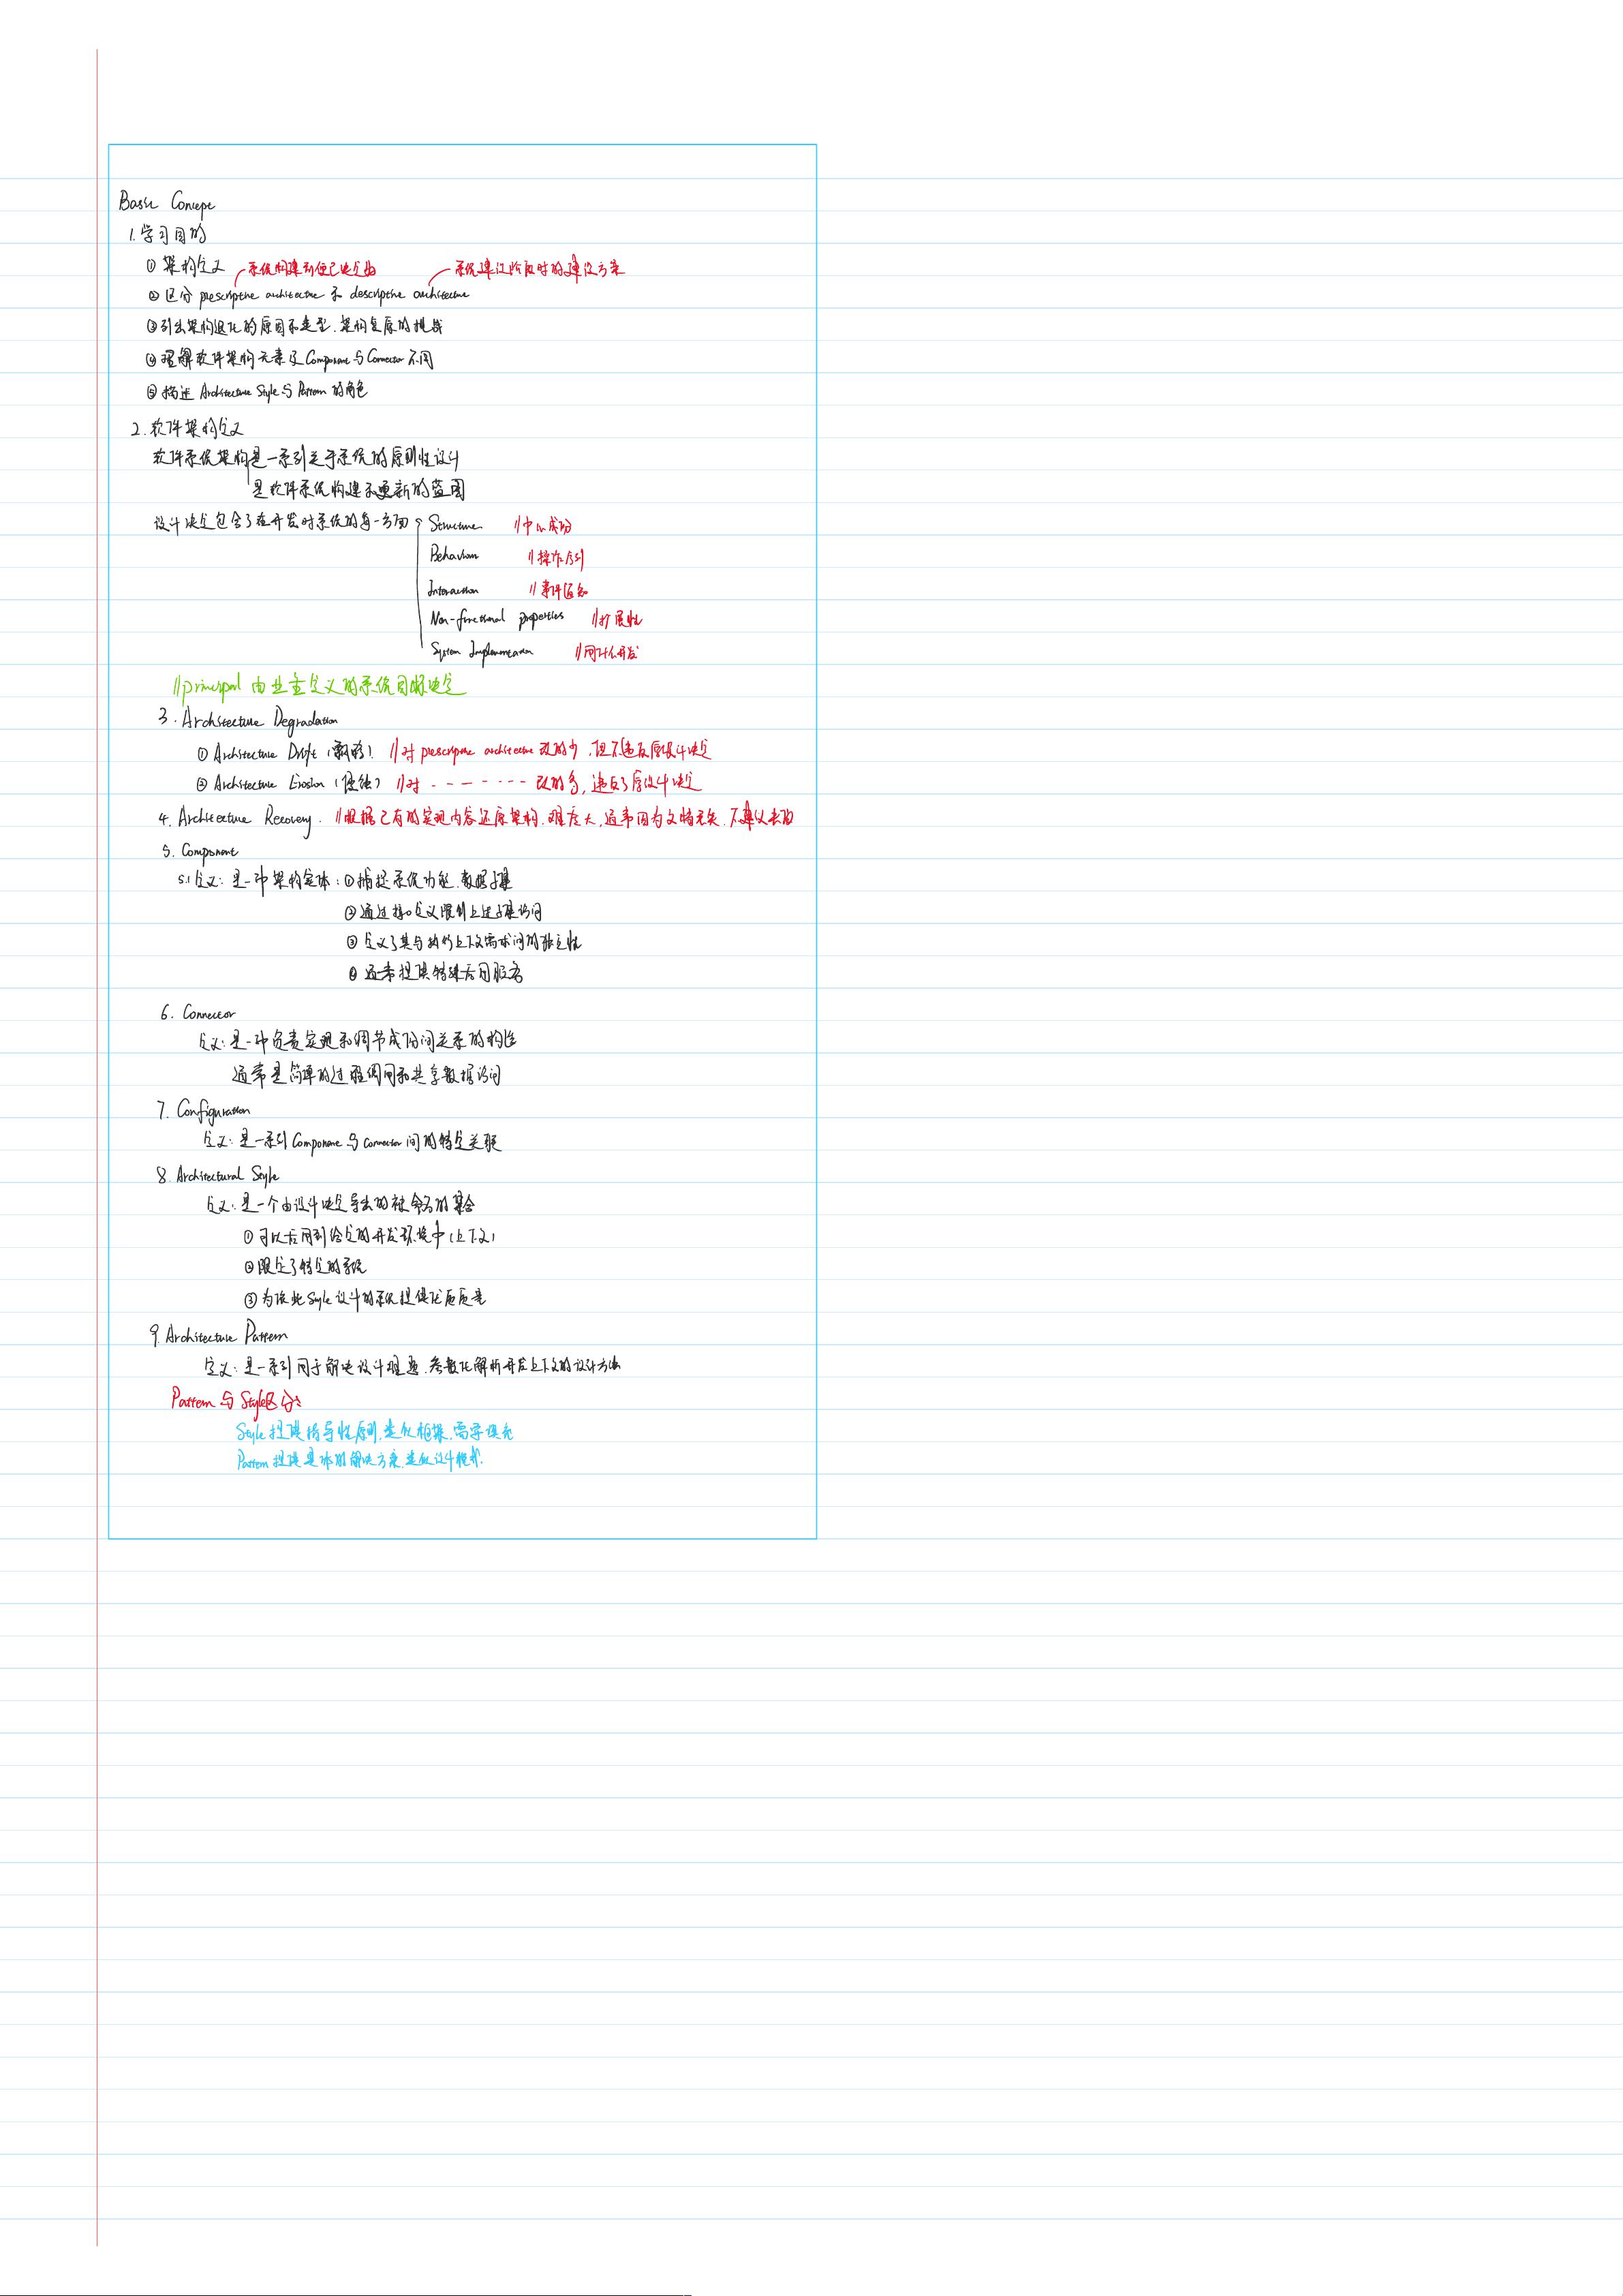 Basic Concept
1.学习目的
① 架构定义 系统构建前便已决定好 系统建设阶段时的建设方案
② 区分 prescriptive architecture 和 descriptive architecture
③ 引出架构退化的原因和类型.架构复原的挑战
④ 理解软件架构元素及Component与Connector不同
⑤ 描述 Architecture Style与Pattern的角色
2.软件架构定义
软件系统架构是一系列关于系统的原则性设计
是软件系统构建和更新的蓝图
设计决定包含了在开发时系统的每一方面 Structure //中心成份
Behaviour //操作序列
Interaction //事件通知
Non-functional properties //扩展性
System Implementation //用什么开发
//principal 由业主定义的系统目标决定
3. Architecture Degradation
① Architecture Drift (飘移) //对 prescriptive architecture 改的少,但不违反原设计决定
② Architecture Erosion (侵蚀) //对 --------- 改的多,违反了原设计决定
4. Architecture Recovery. //根据已有的实现内容还原架构.难度大,通常因为文档丢失.不建议去做
5. Component
5.1定义: 是一种架构实体: ①捕捉系统功能.数据子集
②通过接口定义限制上述子集访问
③ 定义了其与执行上下文需求间的独立性
④ 通常提供特殊应用服务
6. Connector
定义: 是一种负责实现和调节成份间关系的构造
通常是简单的过程调用和共享数据访问
7. Configuration
定义: 是一系列Component与Connector间的特定关联
8. Architectural Style
定义: 是一个由设计决定导出的被命名的集合
① 可以应用到给定的开发环境中(上下文)
② 限定了特定的系统
③ 为该此Style设计的系统提供优质质量
9. Architecture Pattern
定义: 是一系列用于解决设计难题.参数化解析开发上下文的设计方法
Pattern与Style区分:
Style提供指导性原则.类似框架.需要填充
Pattern提供具体的解决方案.类似设计模式.